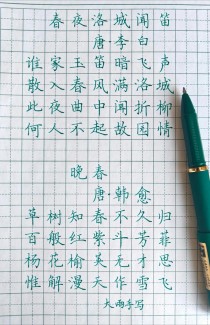 春夜洛城闻笛
唐李白
谁家玉笛暗飞声
散入春风满洛城
此夜曲中闻折柳
何人不起故园情
晚春
唐韩愈
草树知春不久归
百般红紫斗芳菲
杨花榆荚无才思
惟解漫天作雪飞
大雨手写